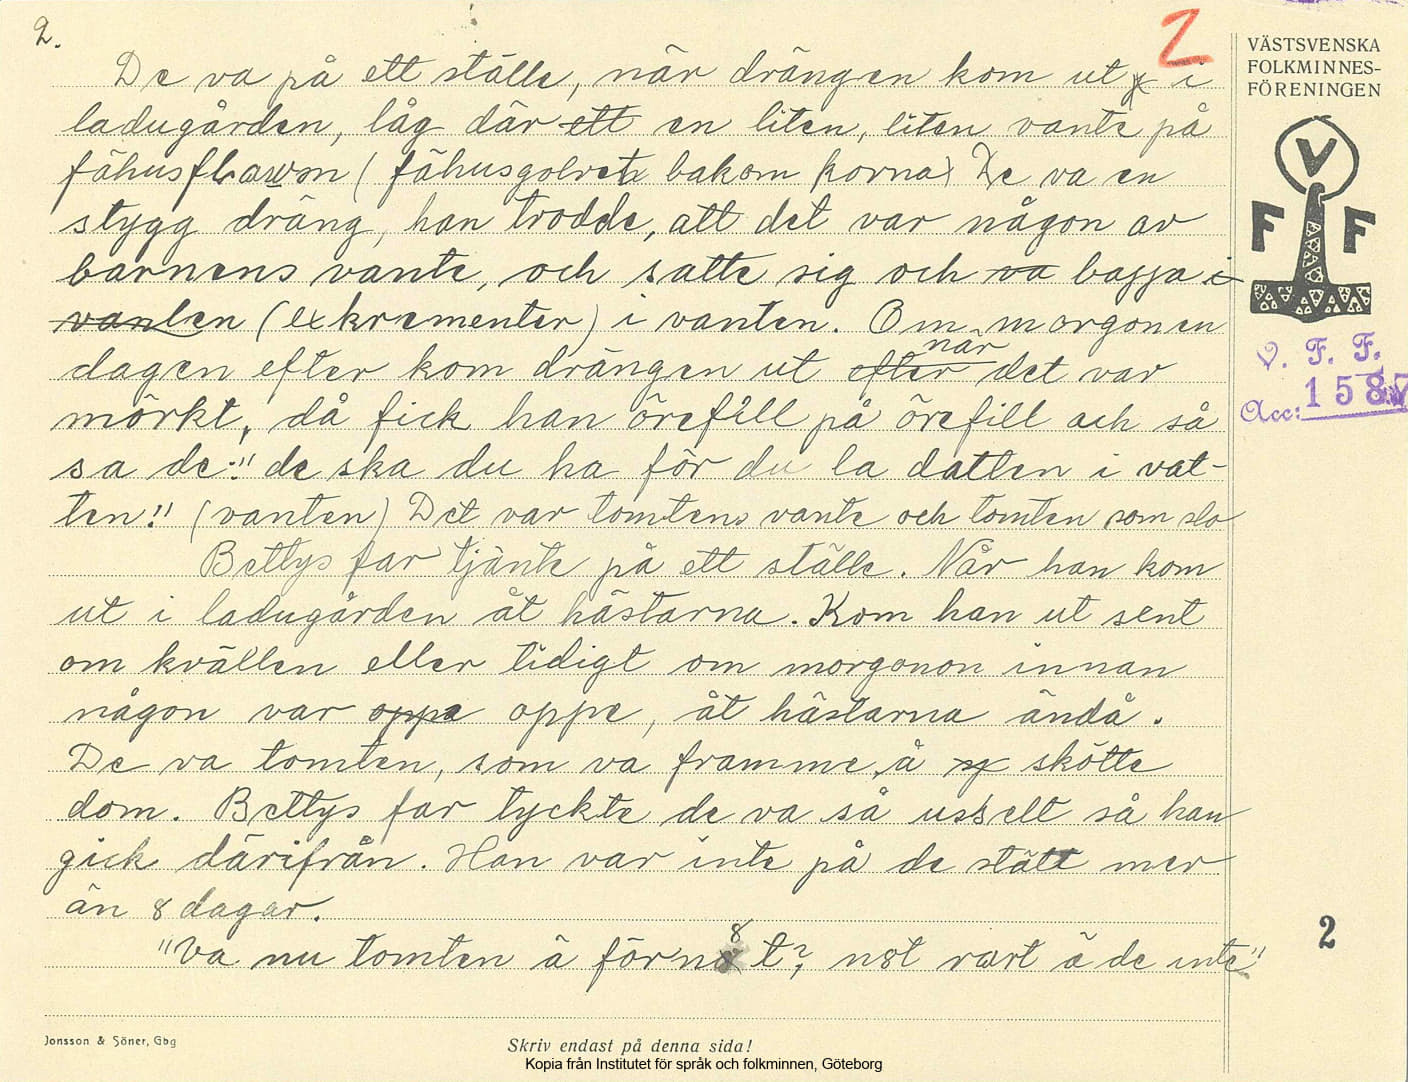 2.
2
De va på ett ställe, när drängen kom ut i
ladugården, låg där ett en liten, liten vante på
fähusflawm (fähusgolvet bakom korna) De va en
stygg dräng, han trodde, att det var någon av
barnens vante, och satte sig och va bajja i
vanten (exkrementer) i vanten. Om morgonen
dagen efter kom drängen ut efter när det var
mörkt, då fick han örefill på örefill och så
sa de: "de ska du ha för du la datten i vat-
ten!" (vanten) Det var tomtens vante och tomten som slo
Bettys far tjänte på ett ställe. När han kom
ut i ladugården åt hästarna. Kom han ut sent
om kvällen eller tidigt om morgonon innan
någon var oppe oppe, åt hästarna ändå.
De va tomten, som va framme å skötte
dom. Bettys far tyckte de va så usselt så han
gick därifrån. Han var inte på de stätt mer
än 8 dagar.
"Va nu tomten ä förn8t? n8t rart ä de inte"
VÄSTSVENSKA
FOLKMINNES-
FÖRENINGEN
V
F F
V. F. F.
Acc: 1587
2
Jonsson & Söner, Gbg
Skriv endast på denna sida!
Kopia från Institutet för språk och folkminnen, Göteborg